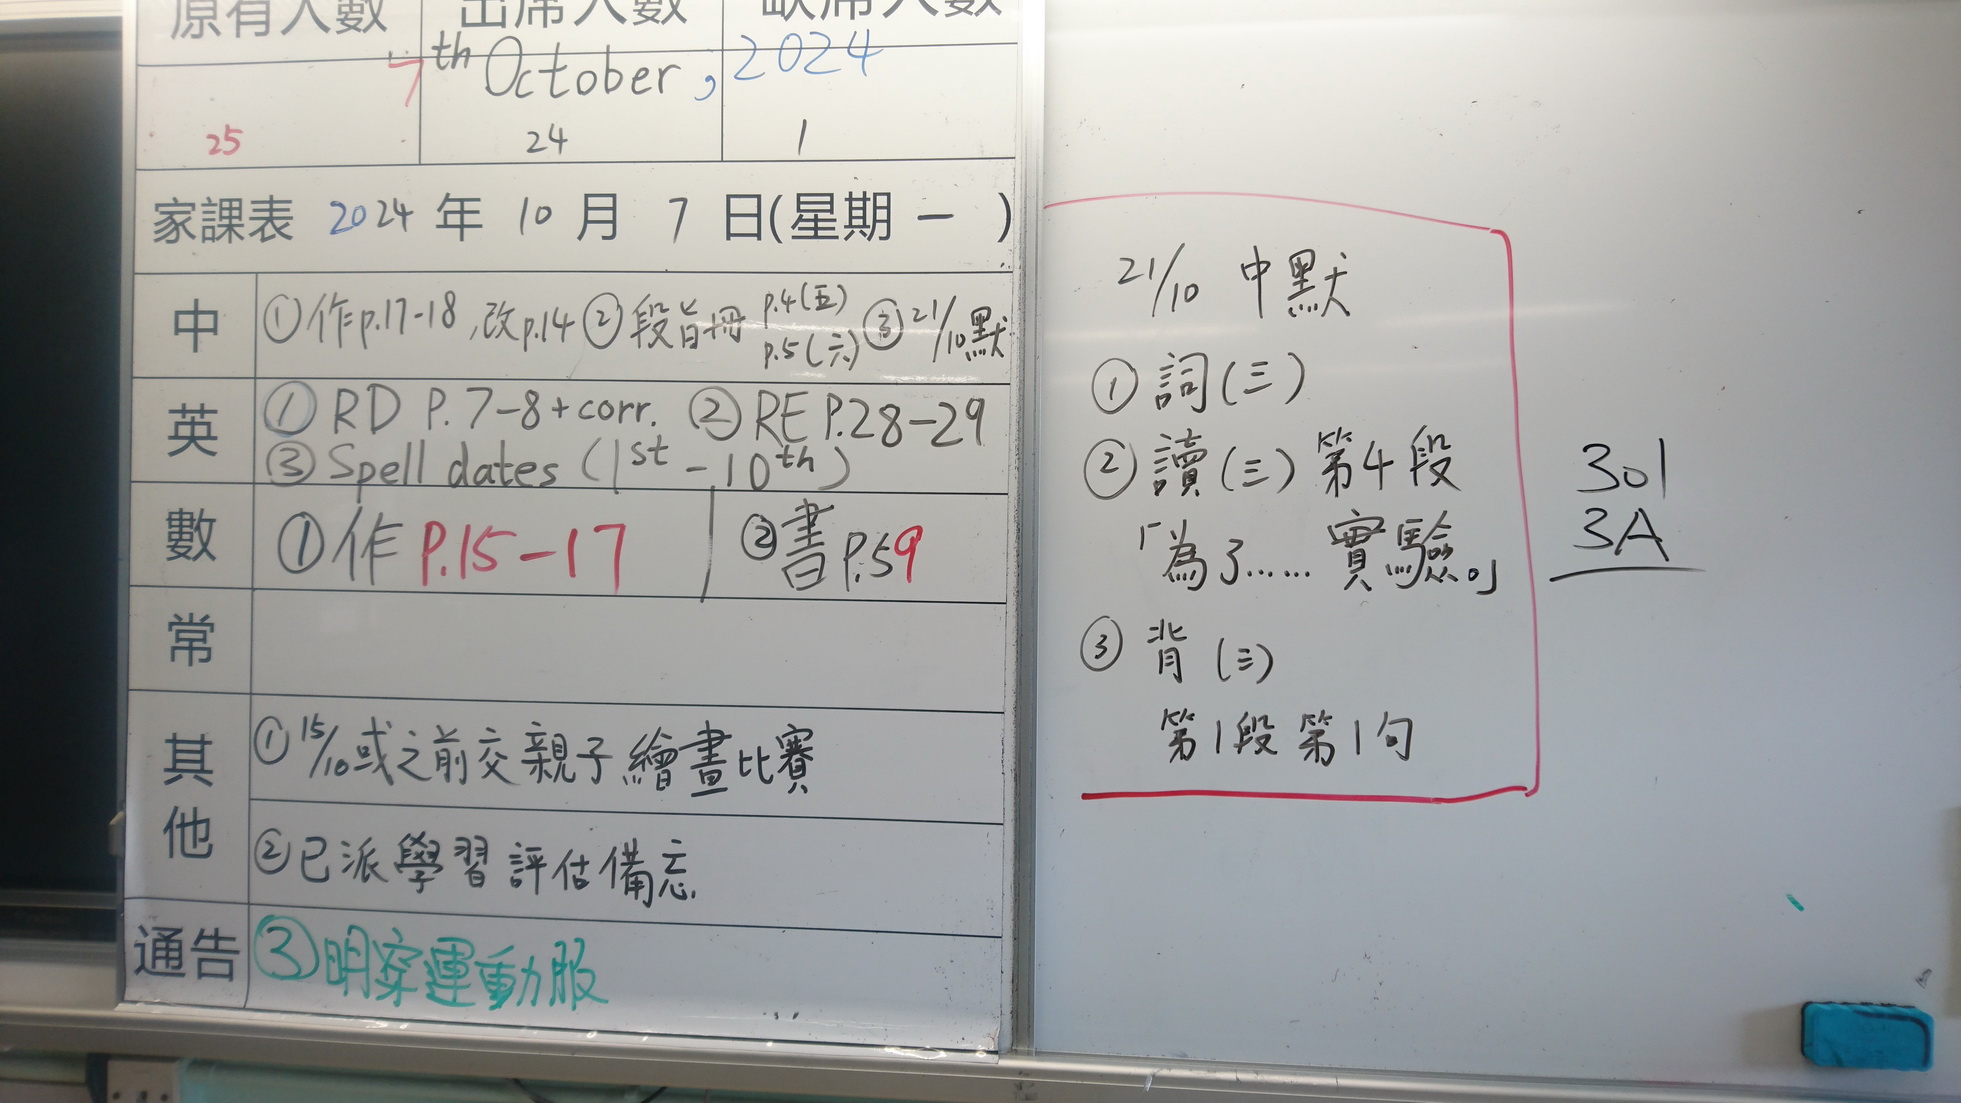 原有人數 出席人數 缺席人數
7th October, 2024
25 24 1
家課表 2024 年 10 月 7 日(星期 一 )
中 ①作p.17-18,改p.14 ②段旨冊 p.4(五) p.5(六) ③21/10默
英 ① RD P.7-8+corr. ② RE P.28-29
③ Spell dates (1st-10th)
數 ①作 P.15-17 | ②書 p.59
常
其他 ①15/10或之前交親子繪畫比賽
②已派學習評估備忘
通告 ③明穿運動服
21/10 中默
① 詞(三)
② 讀(三) 第4段
「為了……實驗。」
③ 背(三)
第1段第1句
301
3A